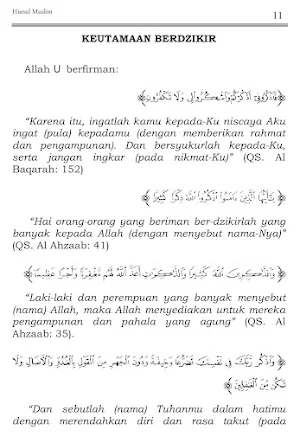 Hisnul Muslim
11
KEUTAMAAN BERDZIKIR
Allah U berfirman:
﴿فَاذْكُرُونِي أَذْكُرْكُمْ وَاشْكُرُوا لِي وَلَا تَكْفُرُونِ﴾
“Karena itu, ingatlah kamu kepada-Ku niscaya Aku
ingat (pula) kepadamu (dengan memberikan rahmat
dan pengampunan). Dan bersyukurlah kepada-Ku,
serta jangan ingkar (pada nikmat-Ku)” (QS. Al
Baqarah: 152)
﴿يَا أَيُّهَا الَّذِينَ ءَامَنُوا اذْكُرُوا اللَّهَ ذِكْرًا كَثِيرًا﴾
“Hai orang-orang yang beriman ber-dzikirlah yang
banyak kepada Allah (dengan menyebut nama-Nya)”
(QS. Al Ahzaab: 41)
﴿وَالذَّاكِرِينَ اللَّهَ كَثِيرًا وَالذَّاكِرَاتِ أَعَدَّ اللَّهُ لَهُمْ مَغْفِرَةً وَأَجْرًا عَظِيمًا﴾
“Laki-laki dan perempuan yang banyak menyebut
(nama) Allah, maka Allah menyediakan untuk mereka
pengampunan dan pahala yang agung” (QS. Al
Ahzaab: 35).
﴿وَاذْكُرْ رَبَّكَ فِي نَفْسِكَ تَضَرُّعًا وَخِيفَةً وَدُونَ الْجَهْرِ مِنَ الْقَوْلِ بِالْغُدُوِّ وَالْآصَالِ وَلَا
تَكُنْ مِنَ الْغَافِلِينَ﴾
“Dan sebutlah (nama) Tuhanmu dalam hatimu
dengan merendahkan diri dan rasa takut (pada